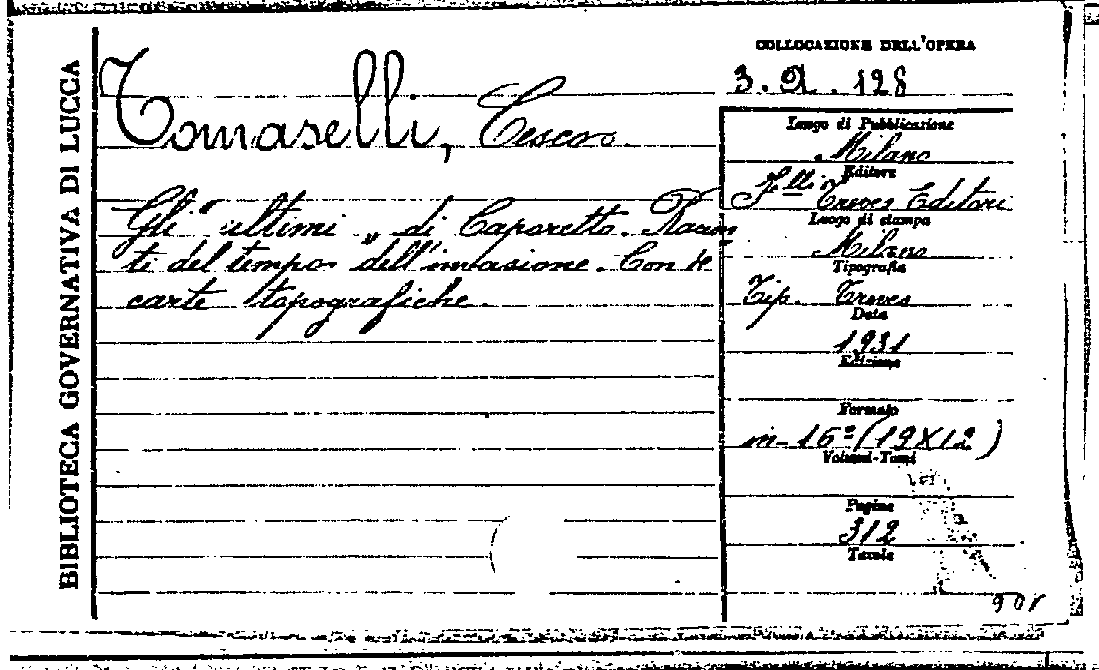 BIBLIOTECA GOVERNATIVA DI LUCCA
Tomaselli, Cesco.
Gli "ultimi" di Caporetto. Raccon
ti del tempo dell'invasione. Con
carte topografiche.
COLLOCAZIONE DELL'OPERA
3. 128
Luogo di Pubblicazione
Milano
Editore
F.lli Treves Editori
Luogo di stampa
Milano
Tipografia
Tip. Treves
Data
1931
Edizione
Formato
in-16º (19X12)
Volumi-Tomi
Pagine
312
Tavole